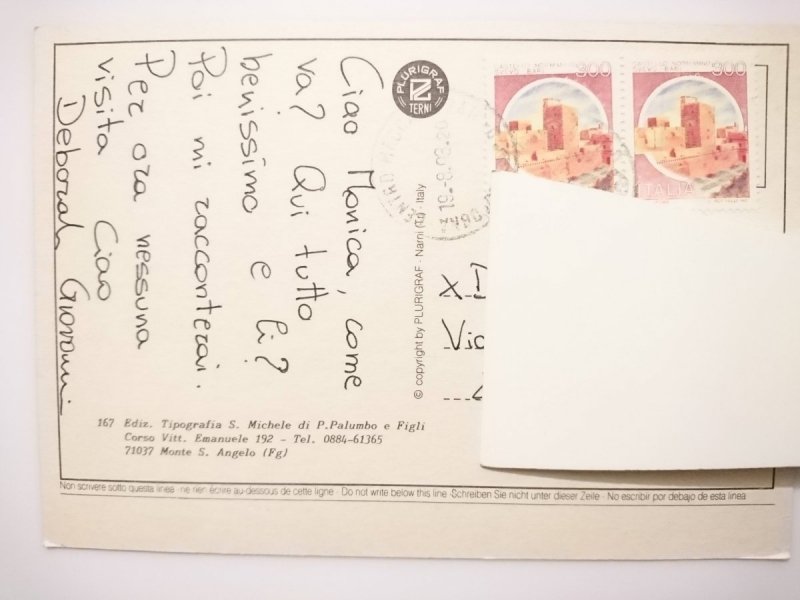 Ciao Monica, come
va? Qui tutto
benissimo e li?
Poi mi racconterai.
Per ora nessuna
visita Ciao
Deborah Giovanni
PLURIGRAF
TERNI
300
300
ITALIA
© copyright by PLURIGRAF - Narni (Tr) - Italy
167 Ediz. Tipografia S. Michele di P.Palumbo e Figli
Corso Vitt. Emanuele 192 - Tel. 0884-61365
71037 Monte S. Angelo (Fg)
Non scrivere sotto questa linea - ne rien écrire au-dessous de cette ligne - Do not write below this line - Schreiben Sie nicht unter dieser Zeile - No escribir por debajo de esta linea